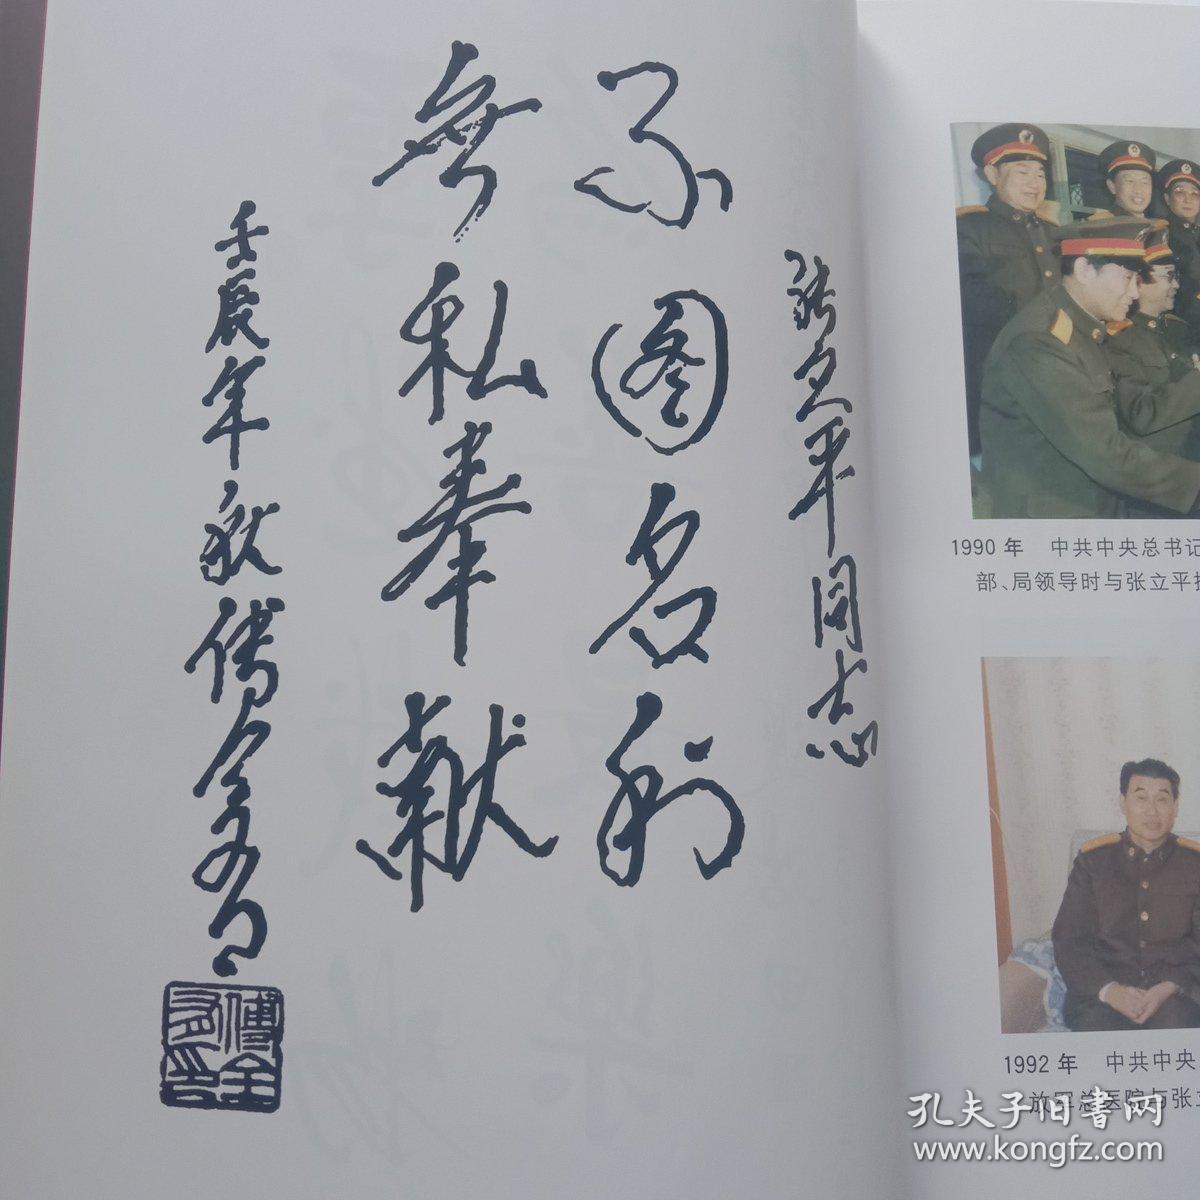 张立平同志
不图名利
無私奉献
壬辰年秋 傅全有
傅全有印
1990年 中共中央总书记
部、局领导时与张立平
1992年 中共中央
放军总医院与张立
孔夫子旧书网
www.kongfz.com